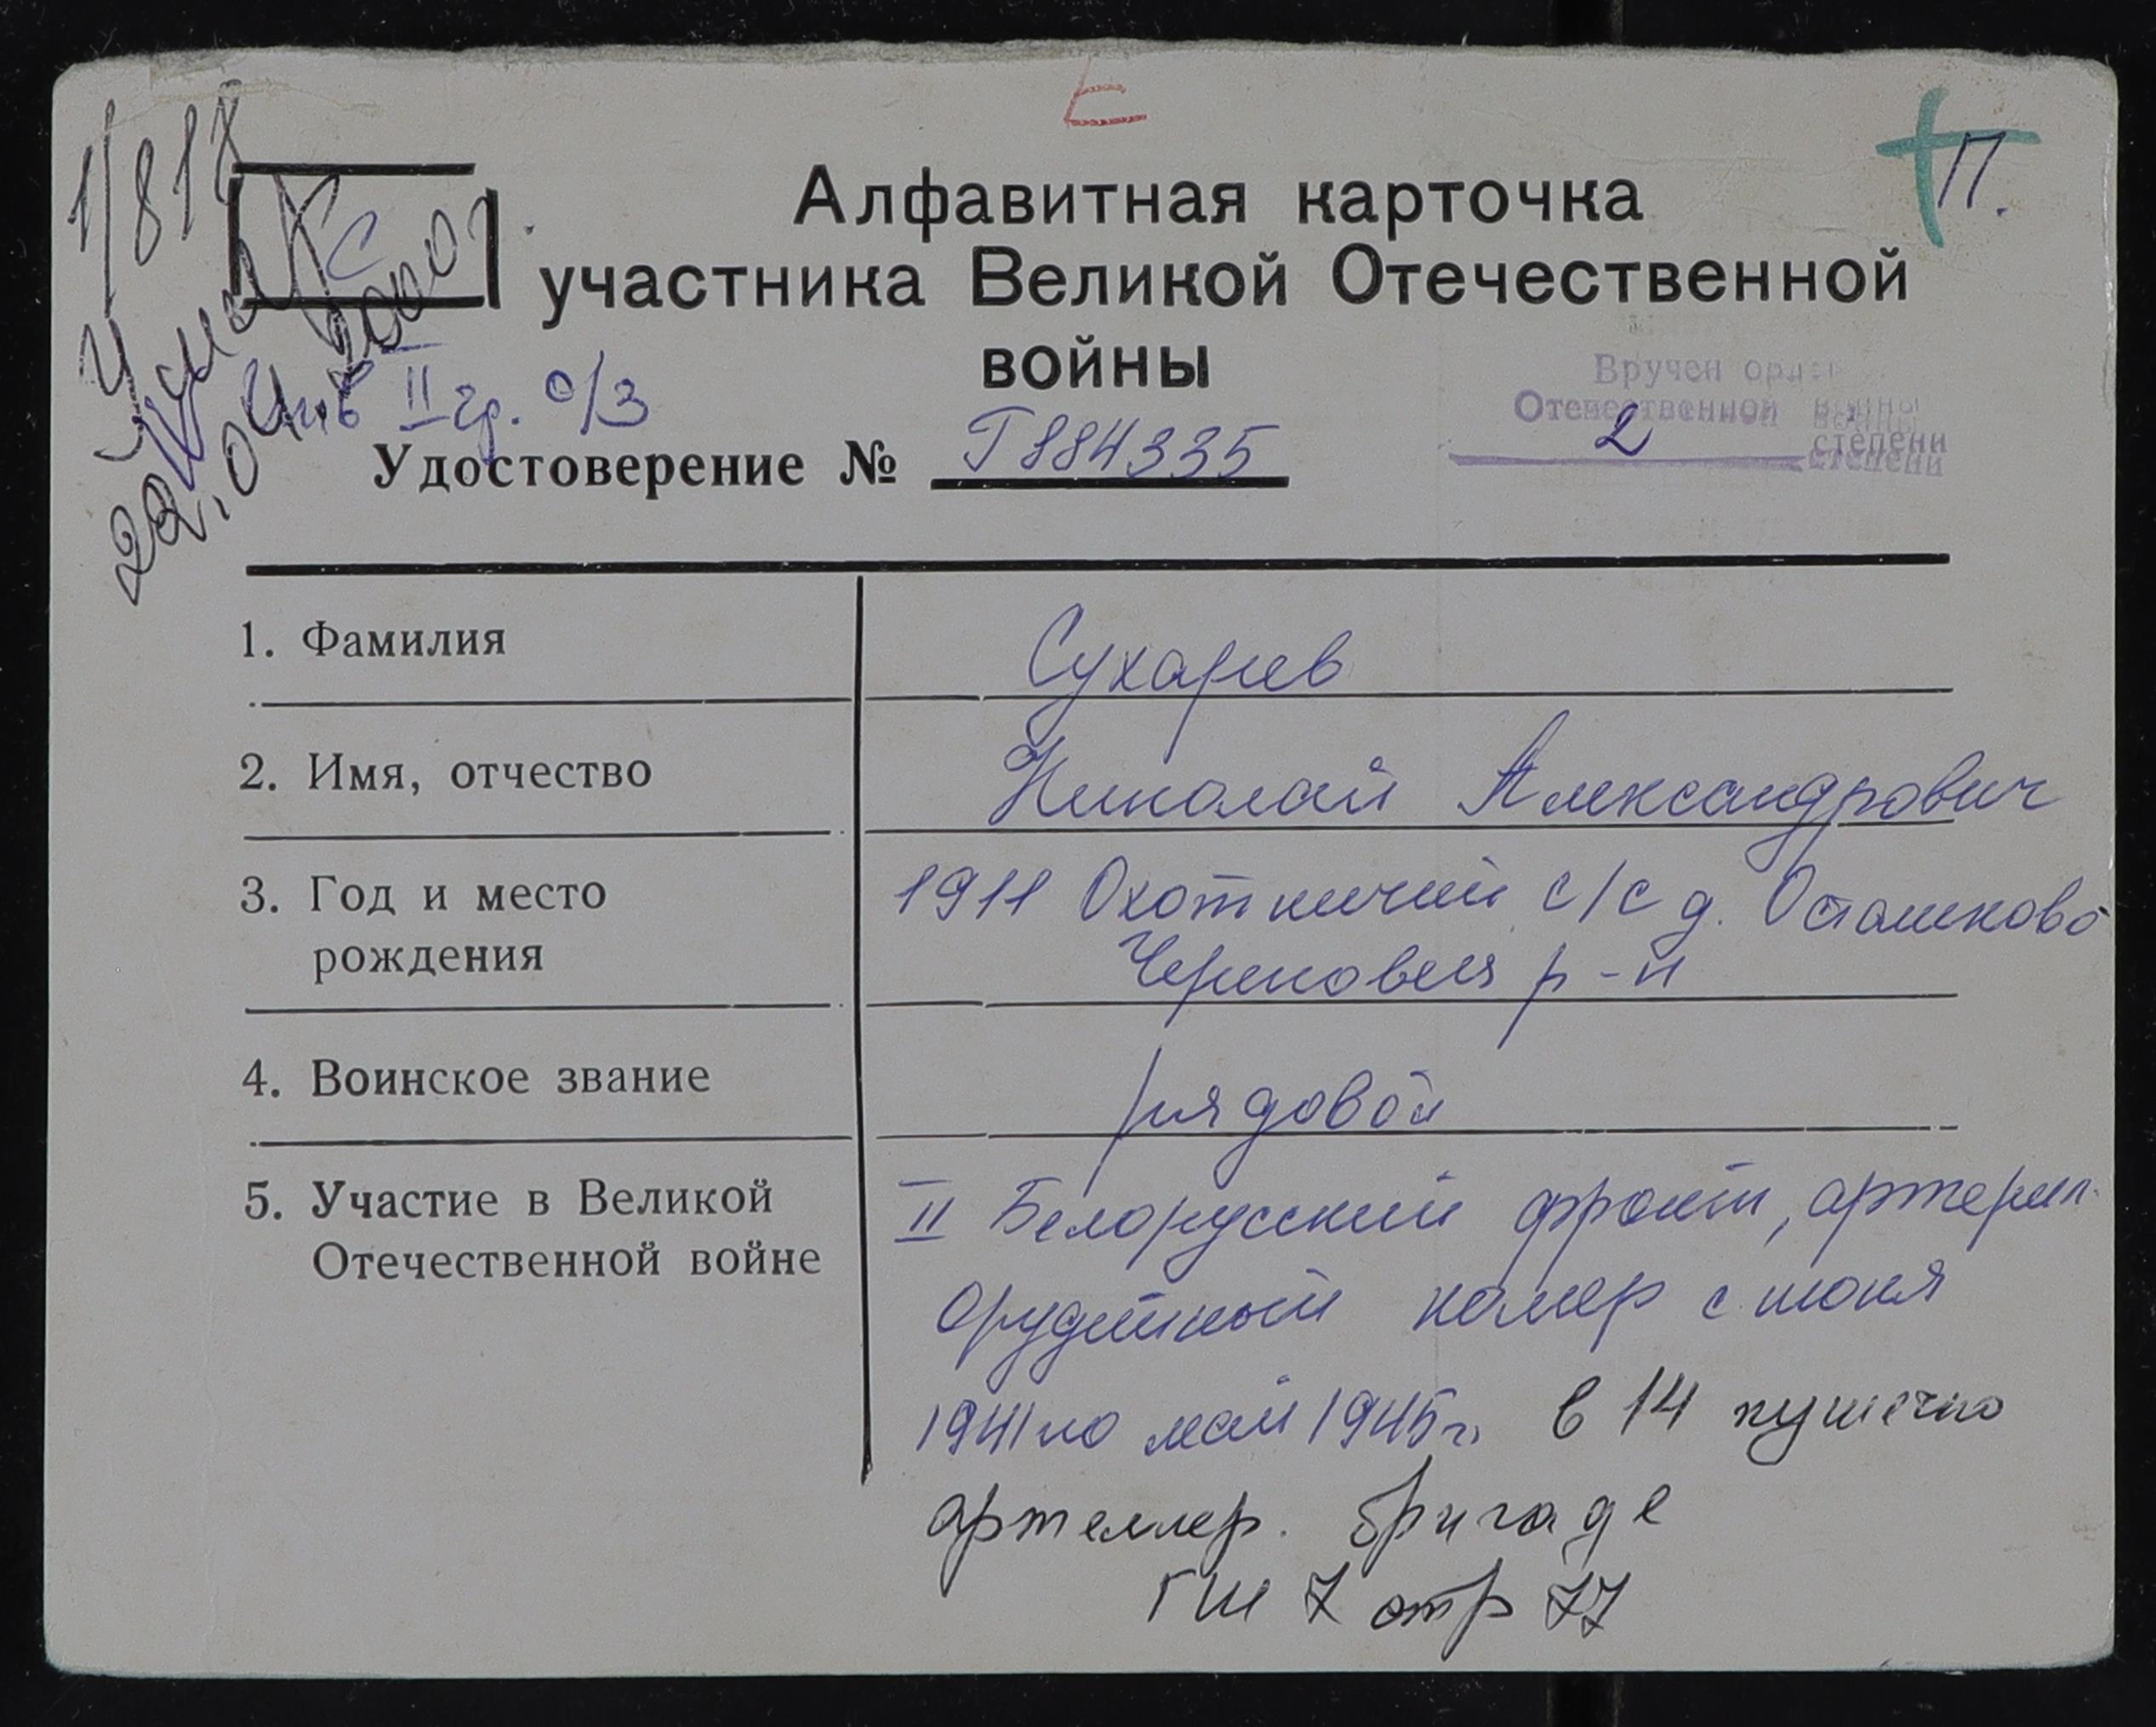 Е
П.
1/818
С
Алфавитная карточка
участника Великой Отечественной
войны
Умер
22.04.2000г.
Инв II гр. о/з
Вручен орден
Отечественной войны
2 степени
Удостоверение № Г884335
1. Фамилия Сухарев
2. Имя, отчество Николай Александрович
3. Год и место 1911 Охотничий с/с д. Осташково
рождения Черновск р-н
4. Воинское звание рядовой
5. Участие в Великой II Белорусский фронт, артерил.
Отечественной войне орудийный номер с июня
1941 по май 1945г. в 14 пушечно
артеллер. бригаде
ГШ 7 стр 77